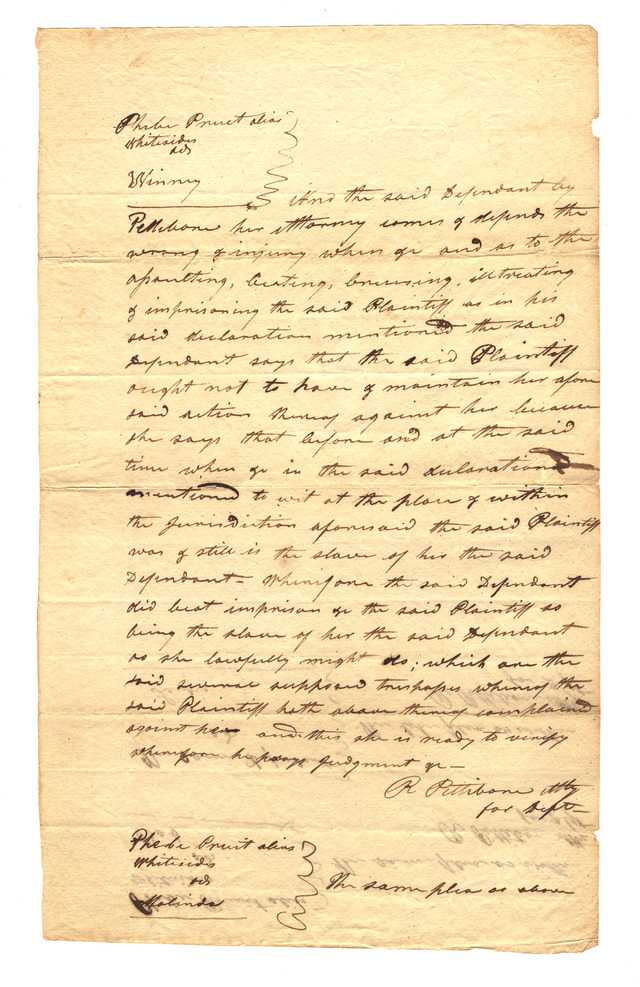 Phebe Pruet alias
Whitesides
ads
Winney
And the said Defendant by
Pettibone her Attorney comes & defends the
wrong & injury when &c and as to the
assaulting, beating, bruising, illtreating
& imprisoning the said Plaintiff as in his
said declaration mentioned the said
Defendant says that the said Plaintiff
ought not to have & maintain her afore
said action thereof against her because
she says that before and at the said
time when &c in the said declaration
mentioned to wit at the place & within
the Jurisdiction aforesaid the said Plaintiff
was & still is the slave of her the said
Defendant - Wherefore the said Defendant
did beat imprison &c the said Plaintiff so
being the slave of her the said Defendant
as she lawfully might do; which are the
said several supposed trespasses whereof the
said Plaintiff hath above thereof complained
against her and this she is ready to verify
wherefore he prays Judgment &c -
R Pettibone Atty
for Deft -
Phebe Pruit alias
Whitesides
ads
Malinda
The same plea as above